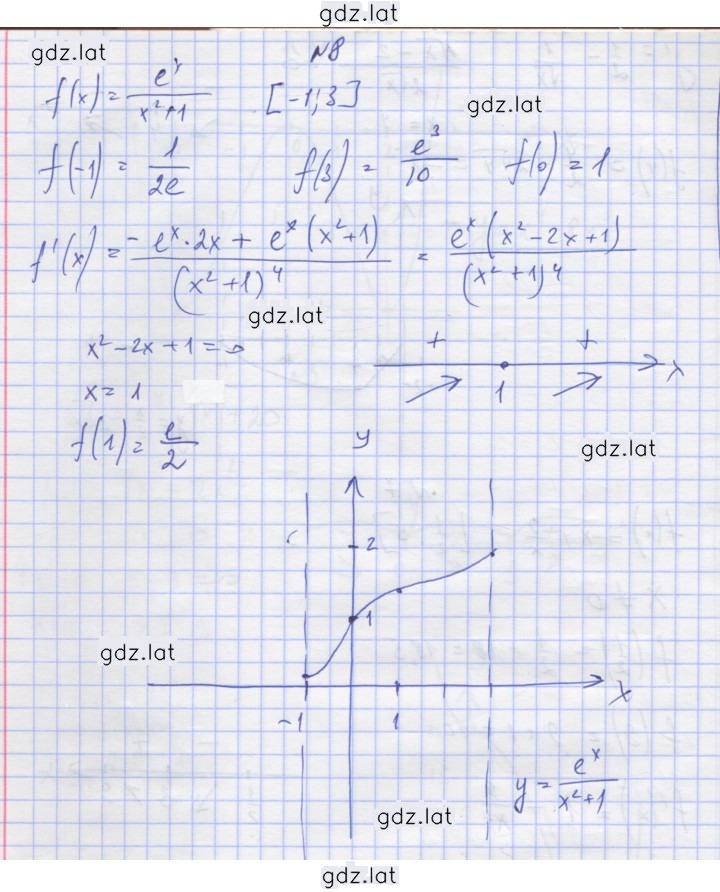 gdz.lat
gdz.lat
N8
f(x) = e^x / (x²+1) [-1; 3]
gdz.lat
f(-1) = 1/(2e) f(3) = e³/10 f(0) = 1
f'(x) = (- e^x · 2x + e^x (x²+1)) / (x²+1)⁴ = e^x (x² - 2x + 1) / (x² + 1)⁴
gdz.lat
x² - 2x + 1 = 0
+ +
x = 1
1 x
f(1) = e/2
y
gdz.lat
2
1
gdz.lat
x
-1 1
y = e^x / (x²+1)
gdz.lat
gdz.lat